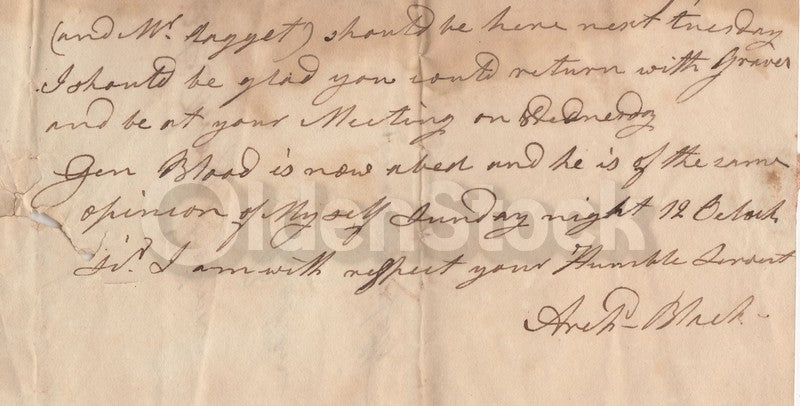 (and Mr. Hagget) should be here next tuesday
I should be glad you could return with Graves
and be at your Meeting on Wednesday
Gen Blood is now abed and he is of the same
opinion of My self Sunday night 12 Oclock
Sir. I am with respect your Humble Servent
Archd Black
OldenStock